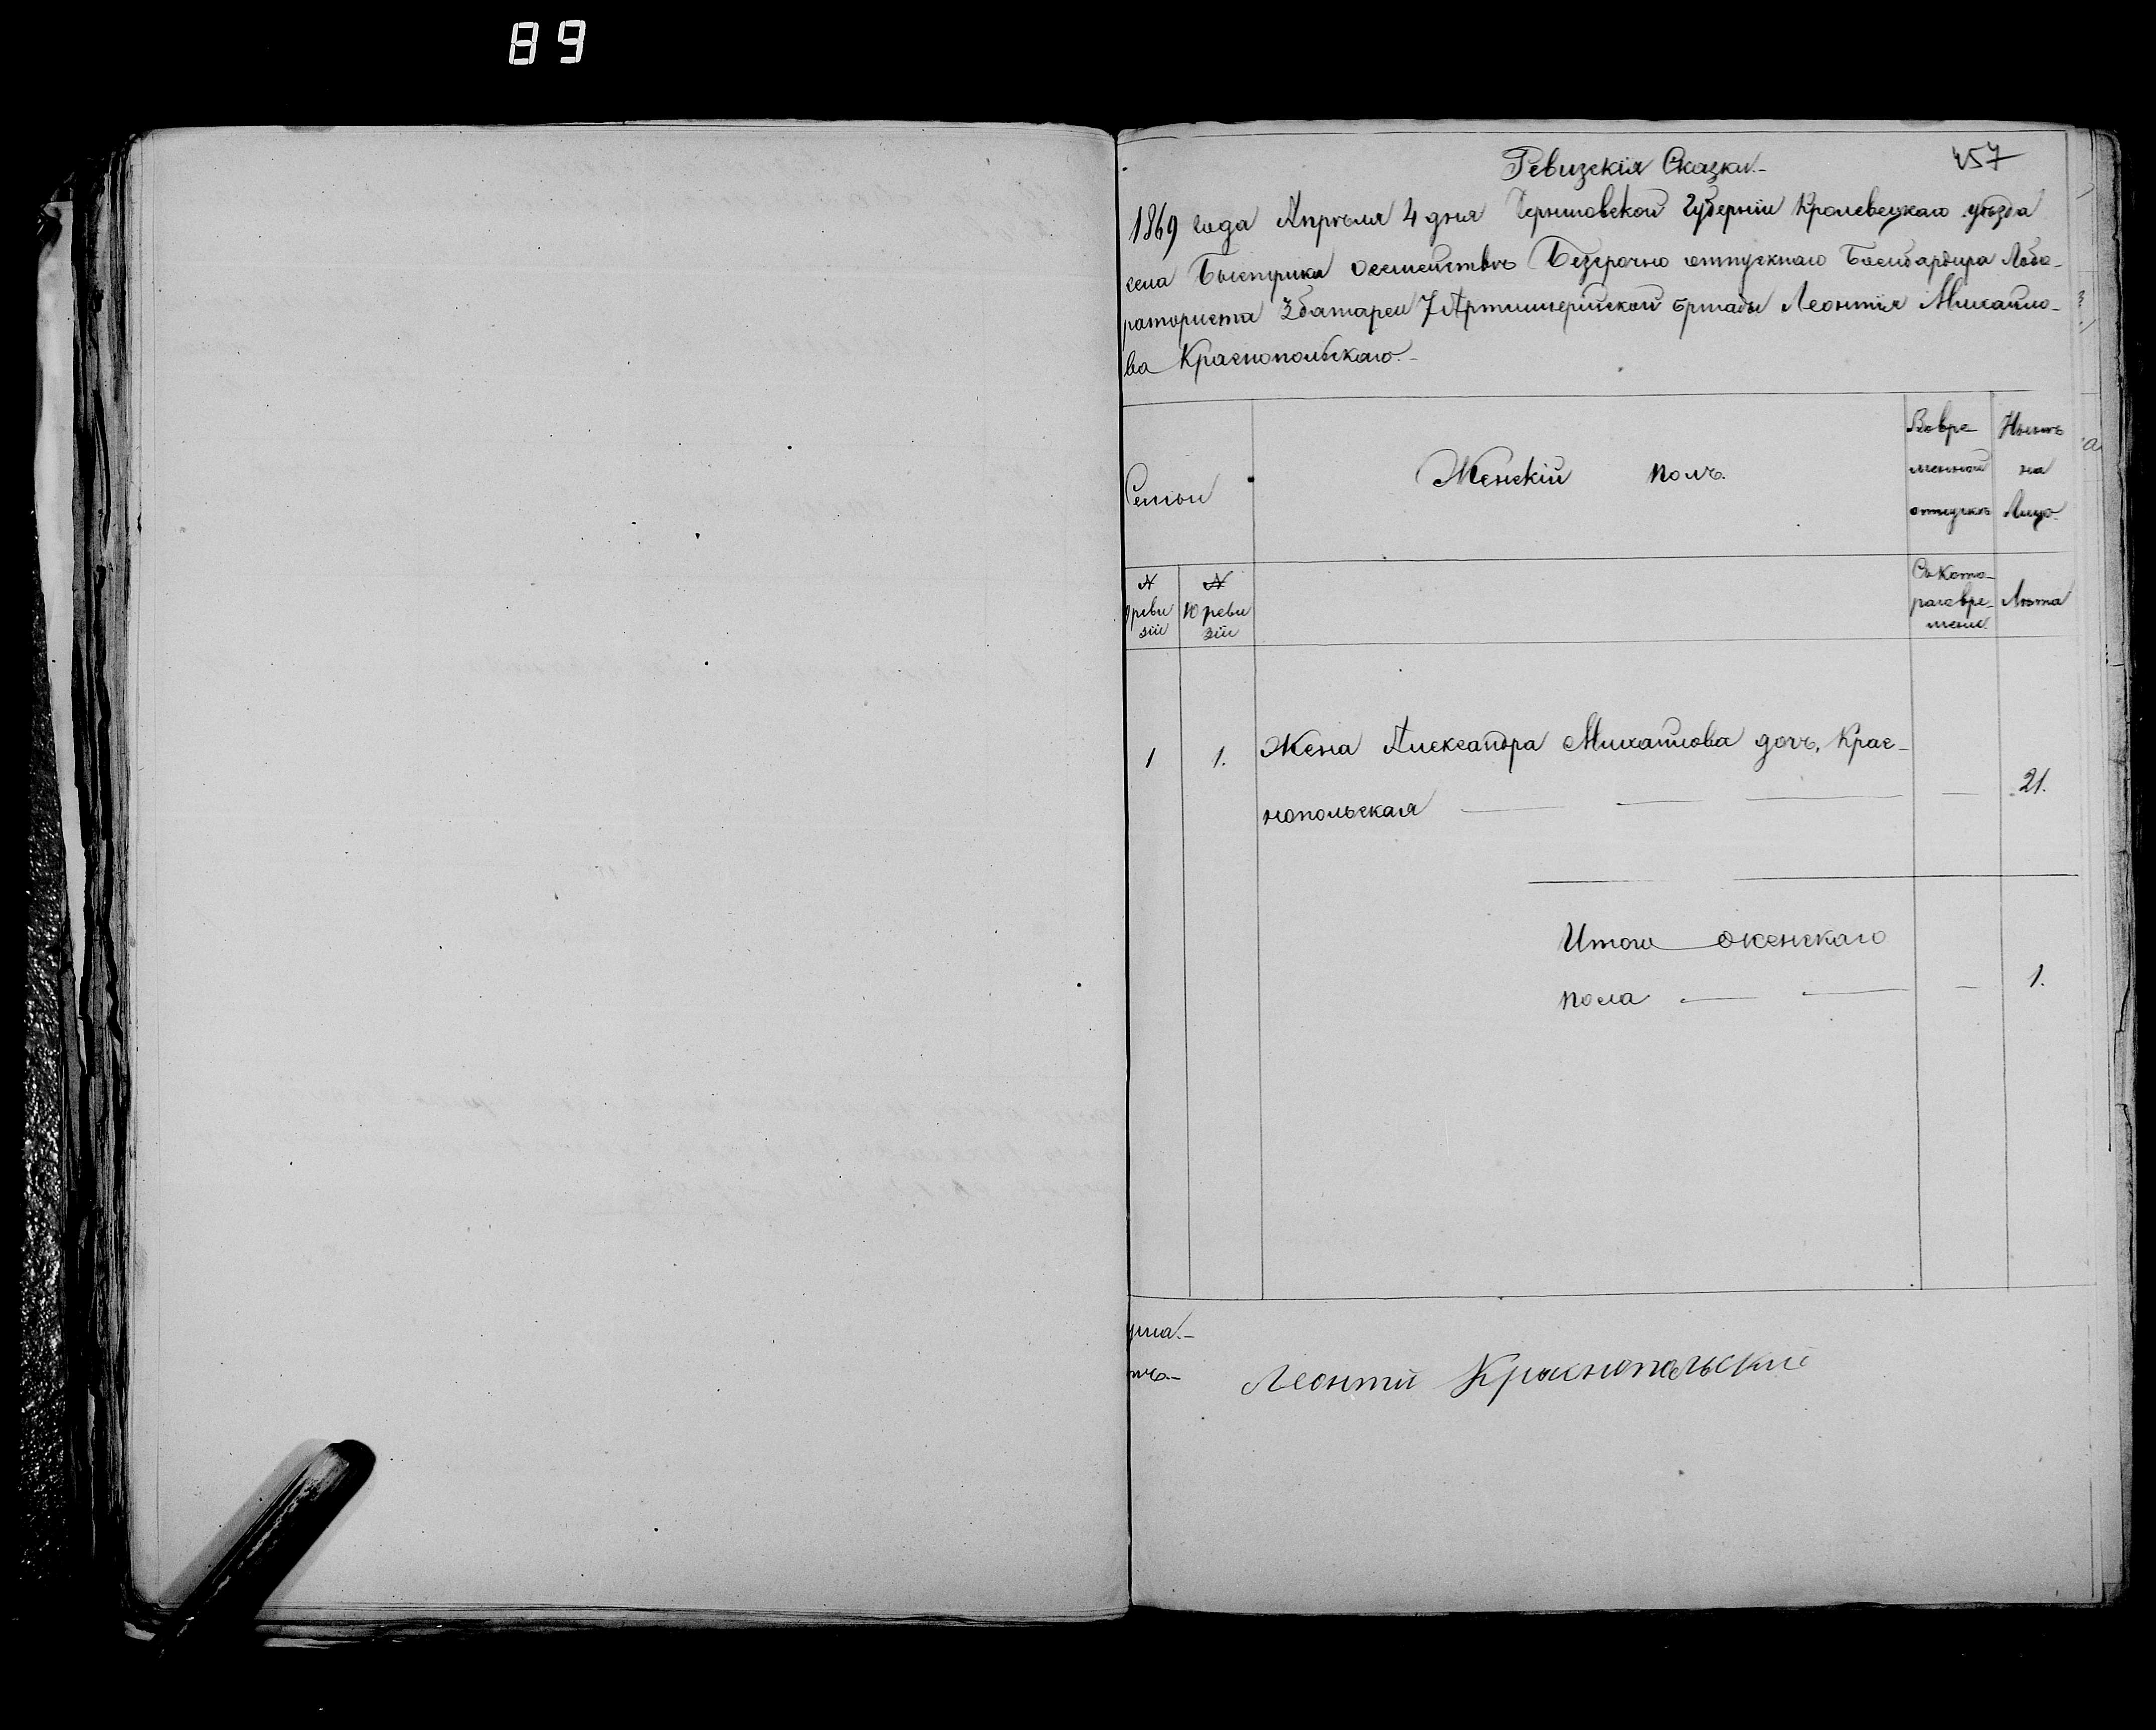 89
457
Ревизскія Сказки.-
1869 года Апрѣля 4 дня Черниговской Губерніи Кролевецкаго уѣзда
села Быстрика осемействѣ Безсрочно отпускнаго Бомбардира Лабо-
раториста 3 батареи 7 Артиллерійской бригады Леонтія Михайло-
ва Краснопольскаго.-
Семьи
Женскій полъ.
Вовре-
менной
отлучкѣ
Нынѣ
на
Лицо.
№
9 реви
зіи
№
10 реви
зіи
Съ Кото-
раго вре-
мени.
Лѣта
1 1. Жена Александра Михайлова дочь, Крас-
нопольская — — — — 21.
Итого женскаго
пола — — — 1.
Леонтій Краснопольскій